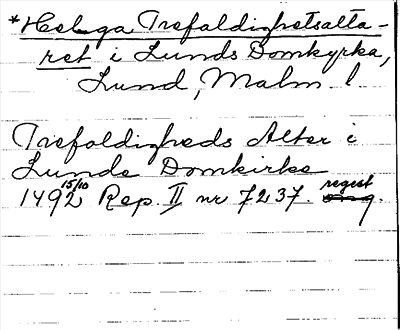 *Helga Trefaldighetsalta-
ret i Lunds Domkyrka,
Lund, Malm l
Trefoldigheds Alter i
Lunds Domkirke
1492 15/10 Rep. II nr 7237. regest